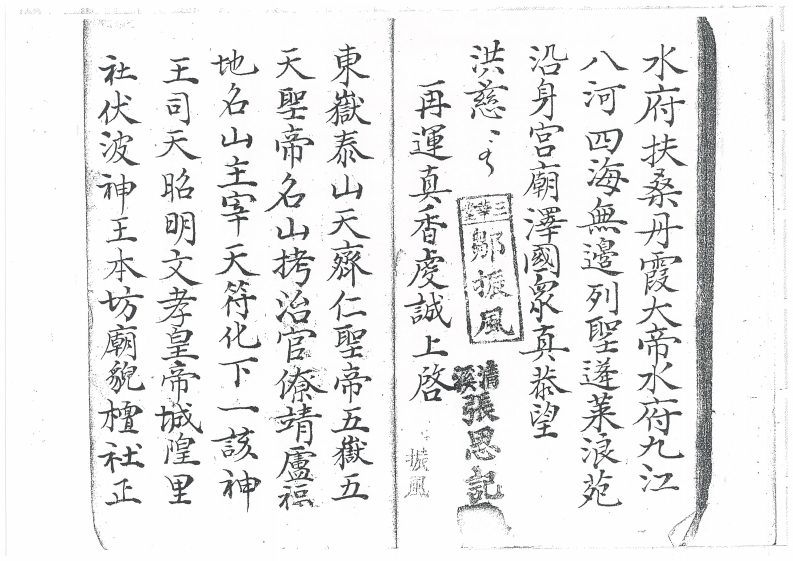 水府扶桑丹霞大帝水府九江
八河四海無邊列聖蓬萊浪苑
沿身宫廟澤國衆真恭望
洪慈
三華堂
鄒振風
清溪
張思記
再運真香虔誠上啓
振風
東嶽泰山天齊仁聖帝五嶽五
天聖帝名山拷治官僚靖廬福
地名山主宰天符化下一該神
王司天昭明文孝皇帝城隍里
社伏波神王本坊廟貌檀社正